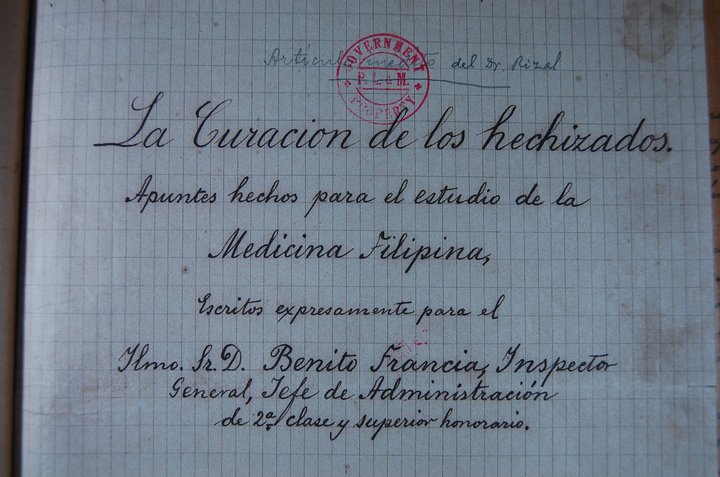 Artículo inedito del Dr Rizal
GOVERNMENT
P. L. & M
PROPERTY
La Curacion de los hechizados.
Apuntes hechos para el estudio de la
Medicina Filipina,
Escritos expresamente para el
Ilmo. Sr. D. Benito Francia, Inspector
General, Jefe de Administración
de 2ª clase y superior honorario.